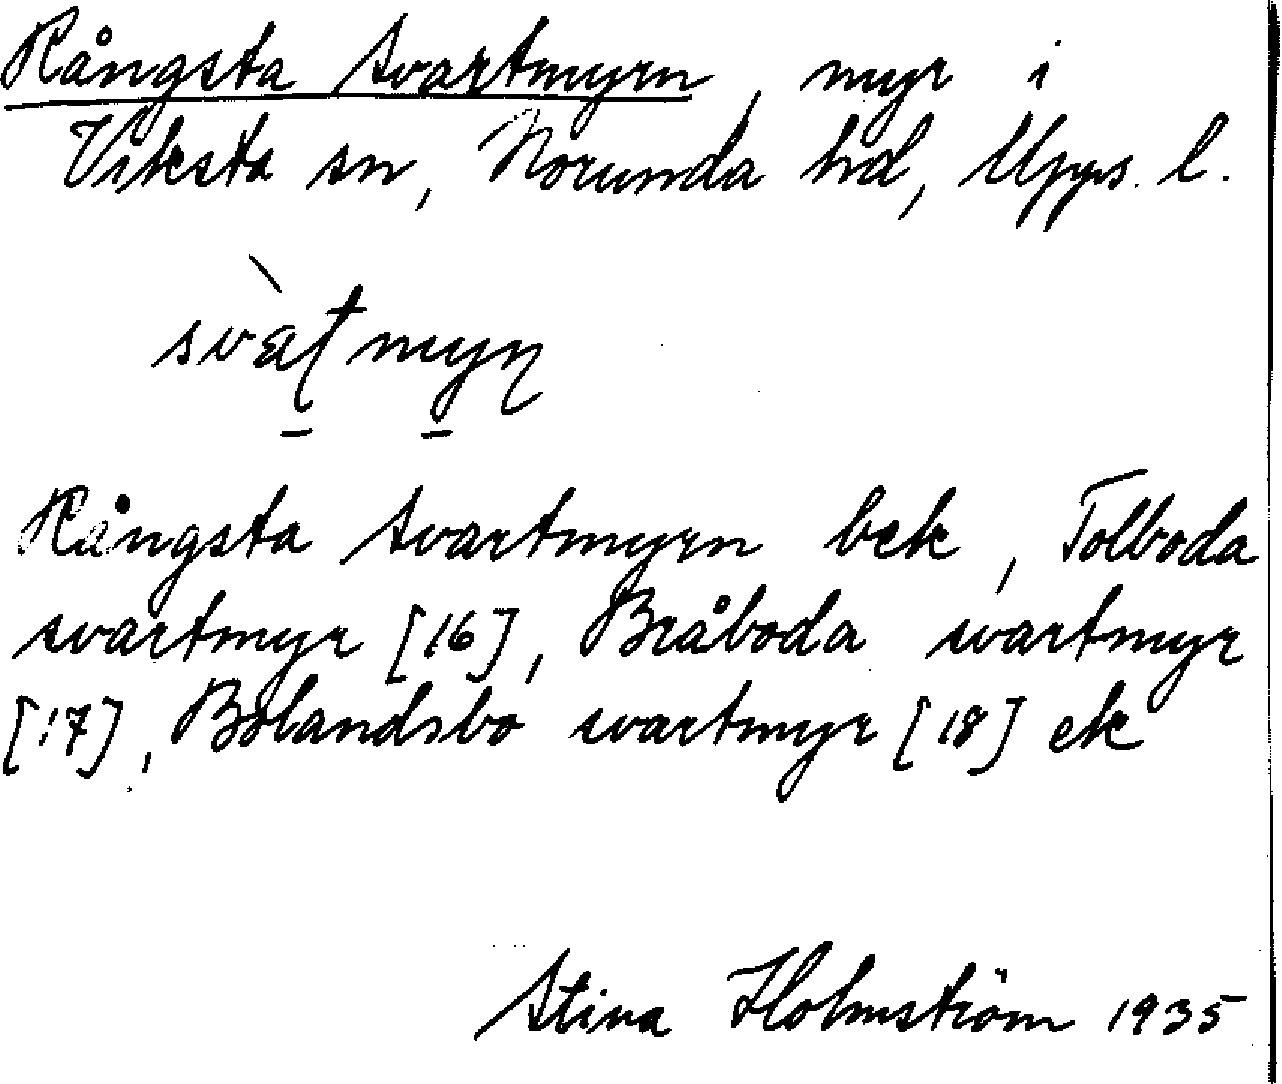 Rångsta svartmyrn, myr i
Viksta sn, Norunda hd, Upps. l.
svàʈmyɳ
Rångsta svartmyrn bek, Tolboda
svartmyr [16], Bråboda svartmyr
[17], Bolandsbo svartmyr [18] ek
Stina Holmström 1935